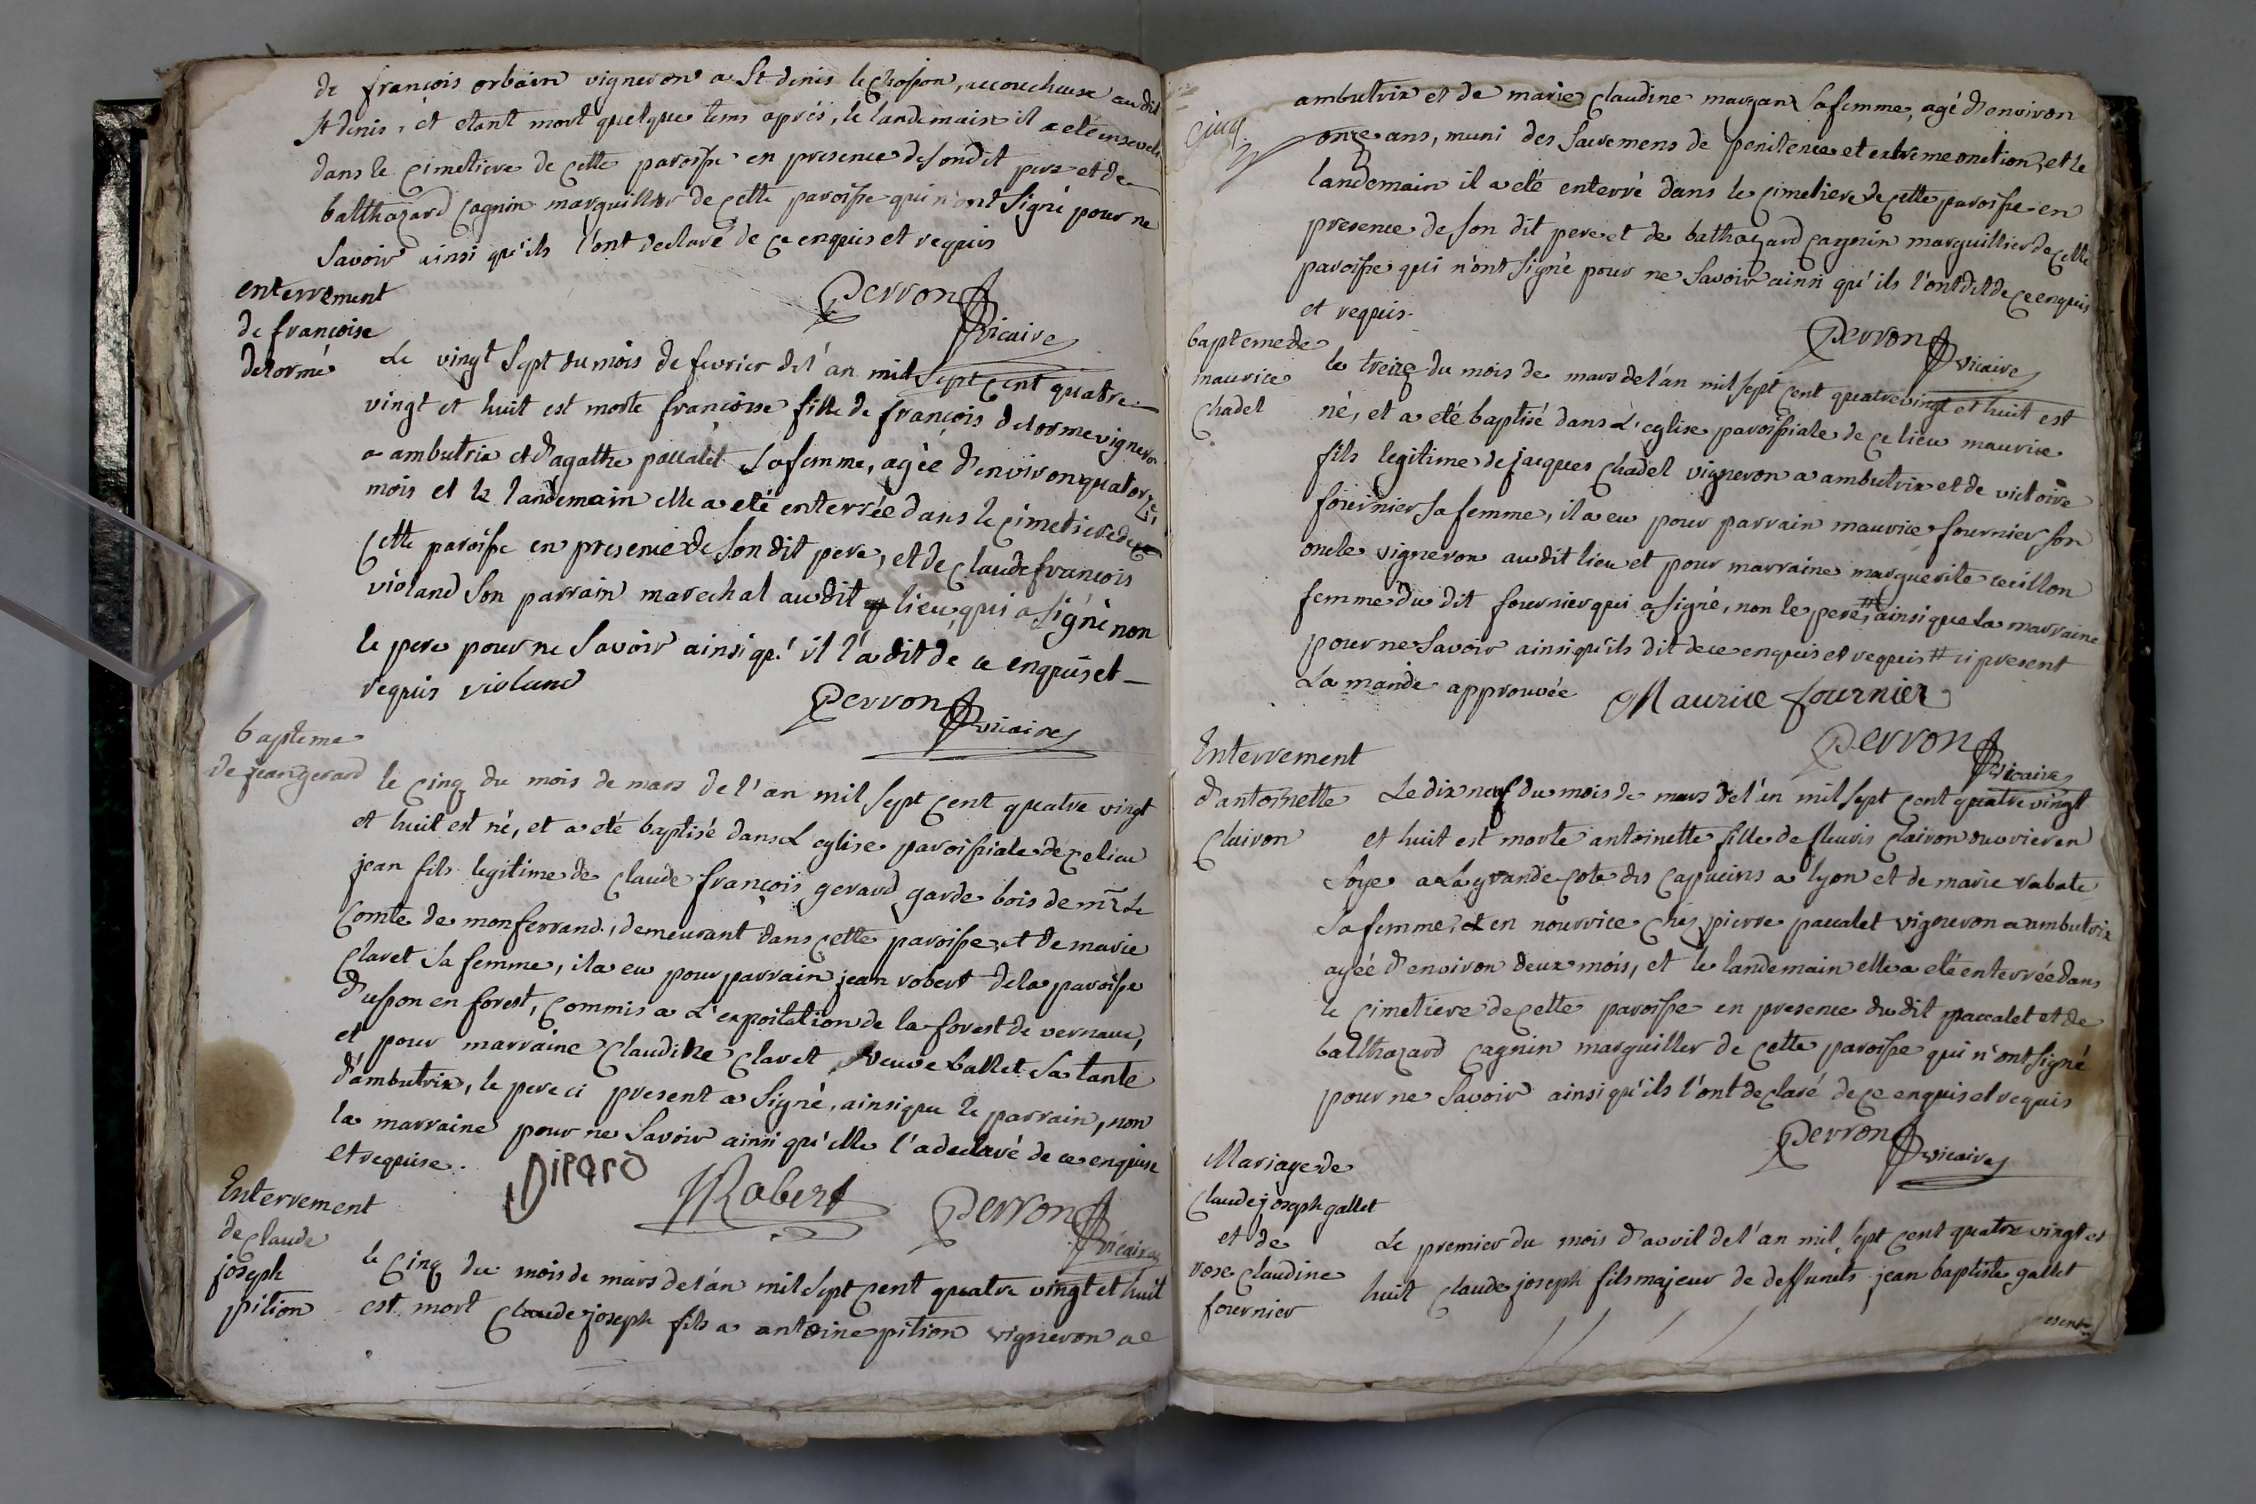 de françois orbain vigneron a St denis le Chosson, accoucheuse audit
St denis, et etant mort quelque tems aprés, le landemain il a eté enseveli
dans le cimetiere de cette paroisse en presence de son dit pere et de
balthazard Cagnin marguillier de cette paroisse qui n'ont signé pour ne
savoir ainsi qu'ils l'ont declaré de ce enquis et requis
Perron
vicaire
enterrement
de françoise
delorme
Le vingt sept du mois de fevrier de l'an mil sept cent quatre
vingt et huit est morte françoise fille de françois delorme vigneron
a ambutrix et d'agathe paccalet sa femme, agée d'environ quatorze
mois et le landemain elle a eté enterrée dans le cimetiere de
cette paroisse en presence de son dit pere, et de claude françois
violand son parrain marechal audit lieu, qui a signé non
le pere pour ne savoir ainsi qu'il l'a dit de ce enquis et
requis violand
Perron
vicaire
bapteme
de jean gerard
le cinq du mois de mars de l'an mil sept cent quatre vingt
et huit est né, et a eté baptisé dans L'eglise paroissiale de ce lieu
jean fils legitime de Claude françois gerard garde bois de mr Le
Comte de monferrand, demeurant dans cette paroisse, et de marie
Claret sa femme, il a eu pour parrain jean robert de la paroisse
d'usson en forest, commis a L'expoitation de la forest de vernaux,
et pour marraine Claudine Claret veuve ballet sa tante
d'ambutrix, le pere ci present a signé, ainsi que le parrain, non
la marraine pour ne savoir ainsi qu'elle l'a declaré de ce enquise
et requise.
Girard
JRobert
Perron
vicaire
Enterrement
de claude
joseph
pition
le cinq du mois de mars de l'an mil sept cent quatre vingt et huit
est mort Claude joseph fils a antoine pition vigneron a
cinq
ambutrix et de marie Claudine sa femme, agé d'environ
onze ans, muni des sacremens de penitence et extreme onction, et le
landemain il a eté enterré dans le cimetiere de cette paroisse en
presence de son dit pere et de balthazard cagnin marguillier de cette
paroisse qui n'ont signé pour ne savoir ainsi qu'ils l'ont dit de ce enquis
et requis.
Perron
vicaire
bapteme de
maurice
Chadel
le treize du mois de mars de l'an mil sept cent quatre vingt et huit est
né, et a eté baptisé dans L'eglise paroissiale de ce lieu maurice
fils legitime de jacques Chadel vigneron a ambutrix et de victoire
fournier sa femme, il a eu pour parrain maurice fournier son
oncle vigneron audit lieu et pour marraine marguerite cecillon
femme du dit fournier qui a signé, non le pere # ainsi que la marraine
pour ne savoir ainsi qu'ils dit de ce enquis et requis # ci present
La mande approuvée Maurice fournier
Perron
vicaire
Enterrement
d'antoinette
Clairon
Le dix neuf du mois de mars de l'an mil sept cent quatre vingt
et huit est morte antoinette fille de fleuris clairon ouvrier en
soye a La grande cote des capucins a lyon et de marie rabate
sa femme, et en nourrice chez pierre paccalet vigneron a ambutrix
agée d'environ deux mois, et le landemain elle a eté enterrée dans
le cimetiere de cette paroisse en presence du dit paccalet et de
balthazard cagnin marguillier de cette paroisse qui n'ont signé
pour ne savoir ainsi qu'ils l'ont declaré de ce enquis et requis
Perron
vicaire
Mariage de
claude joseph gallet
et de
rose claudine
fournier
Le premier du mois d'avril de l'an mil sept cent quatre vingt et
huit claude joseph fils majeur de deffunts jean baptiste gallet